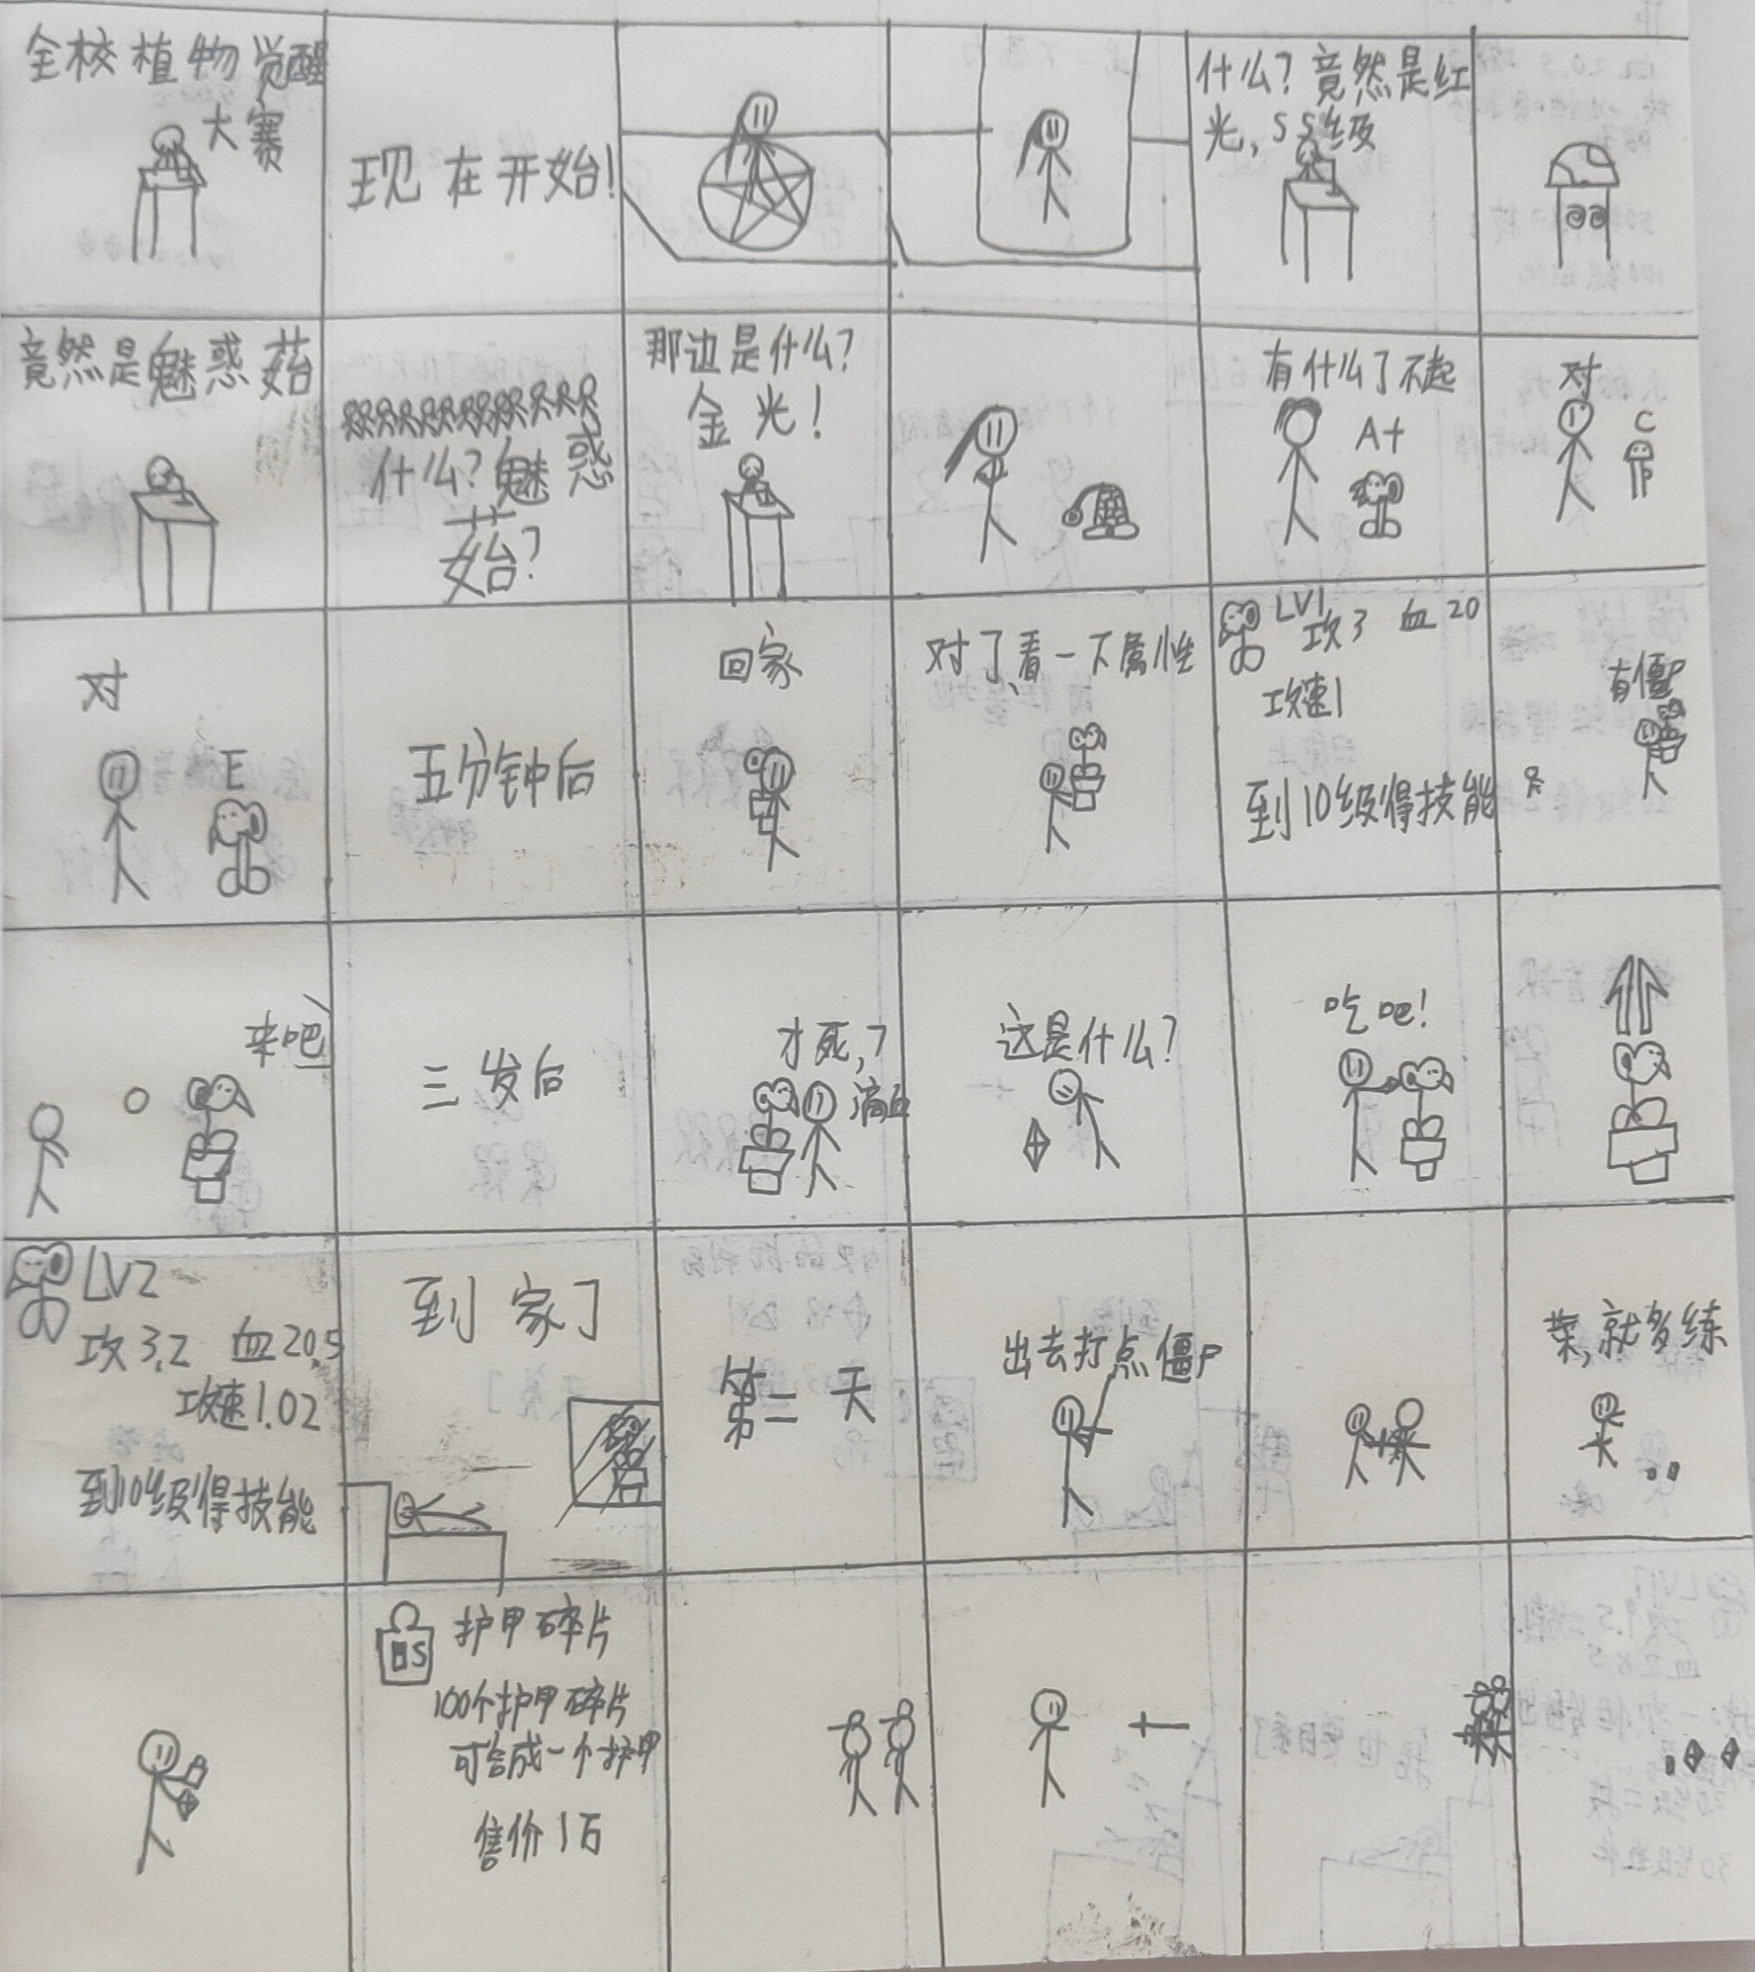 全校植物觉醒
大赛
现在开始!
什么?竟然是红
光,SS级
竟然是魅惑菇
什么?魅惑
菇?
那边是什么?
金光!
有什么了不起
A+
对
C
对
E
五分钟后
回家
对了,看一下属性
LV1
攻3 血20
攻速1
到10级得技能
有僵尸
来吧
三发后
才死,7
滴血
这是什么?
吃吧!
LV2
攻3.2 血20.5
攻速1.02
到10级得技能
到家了
第二天
出去打点僵尸
菜,就多练
护甲碎片
100个护甲碎片
可合成一个护甲
售价1万